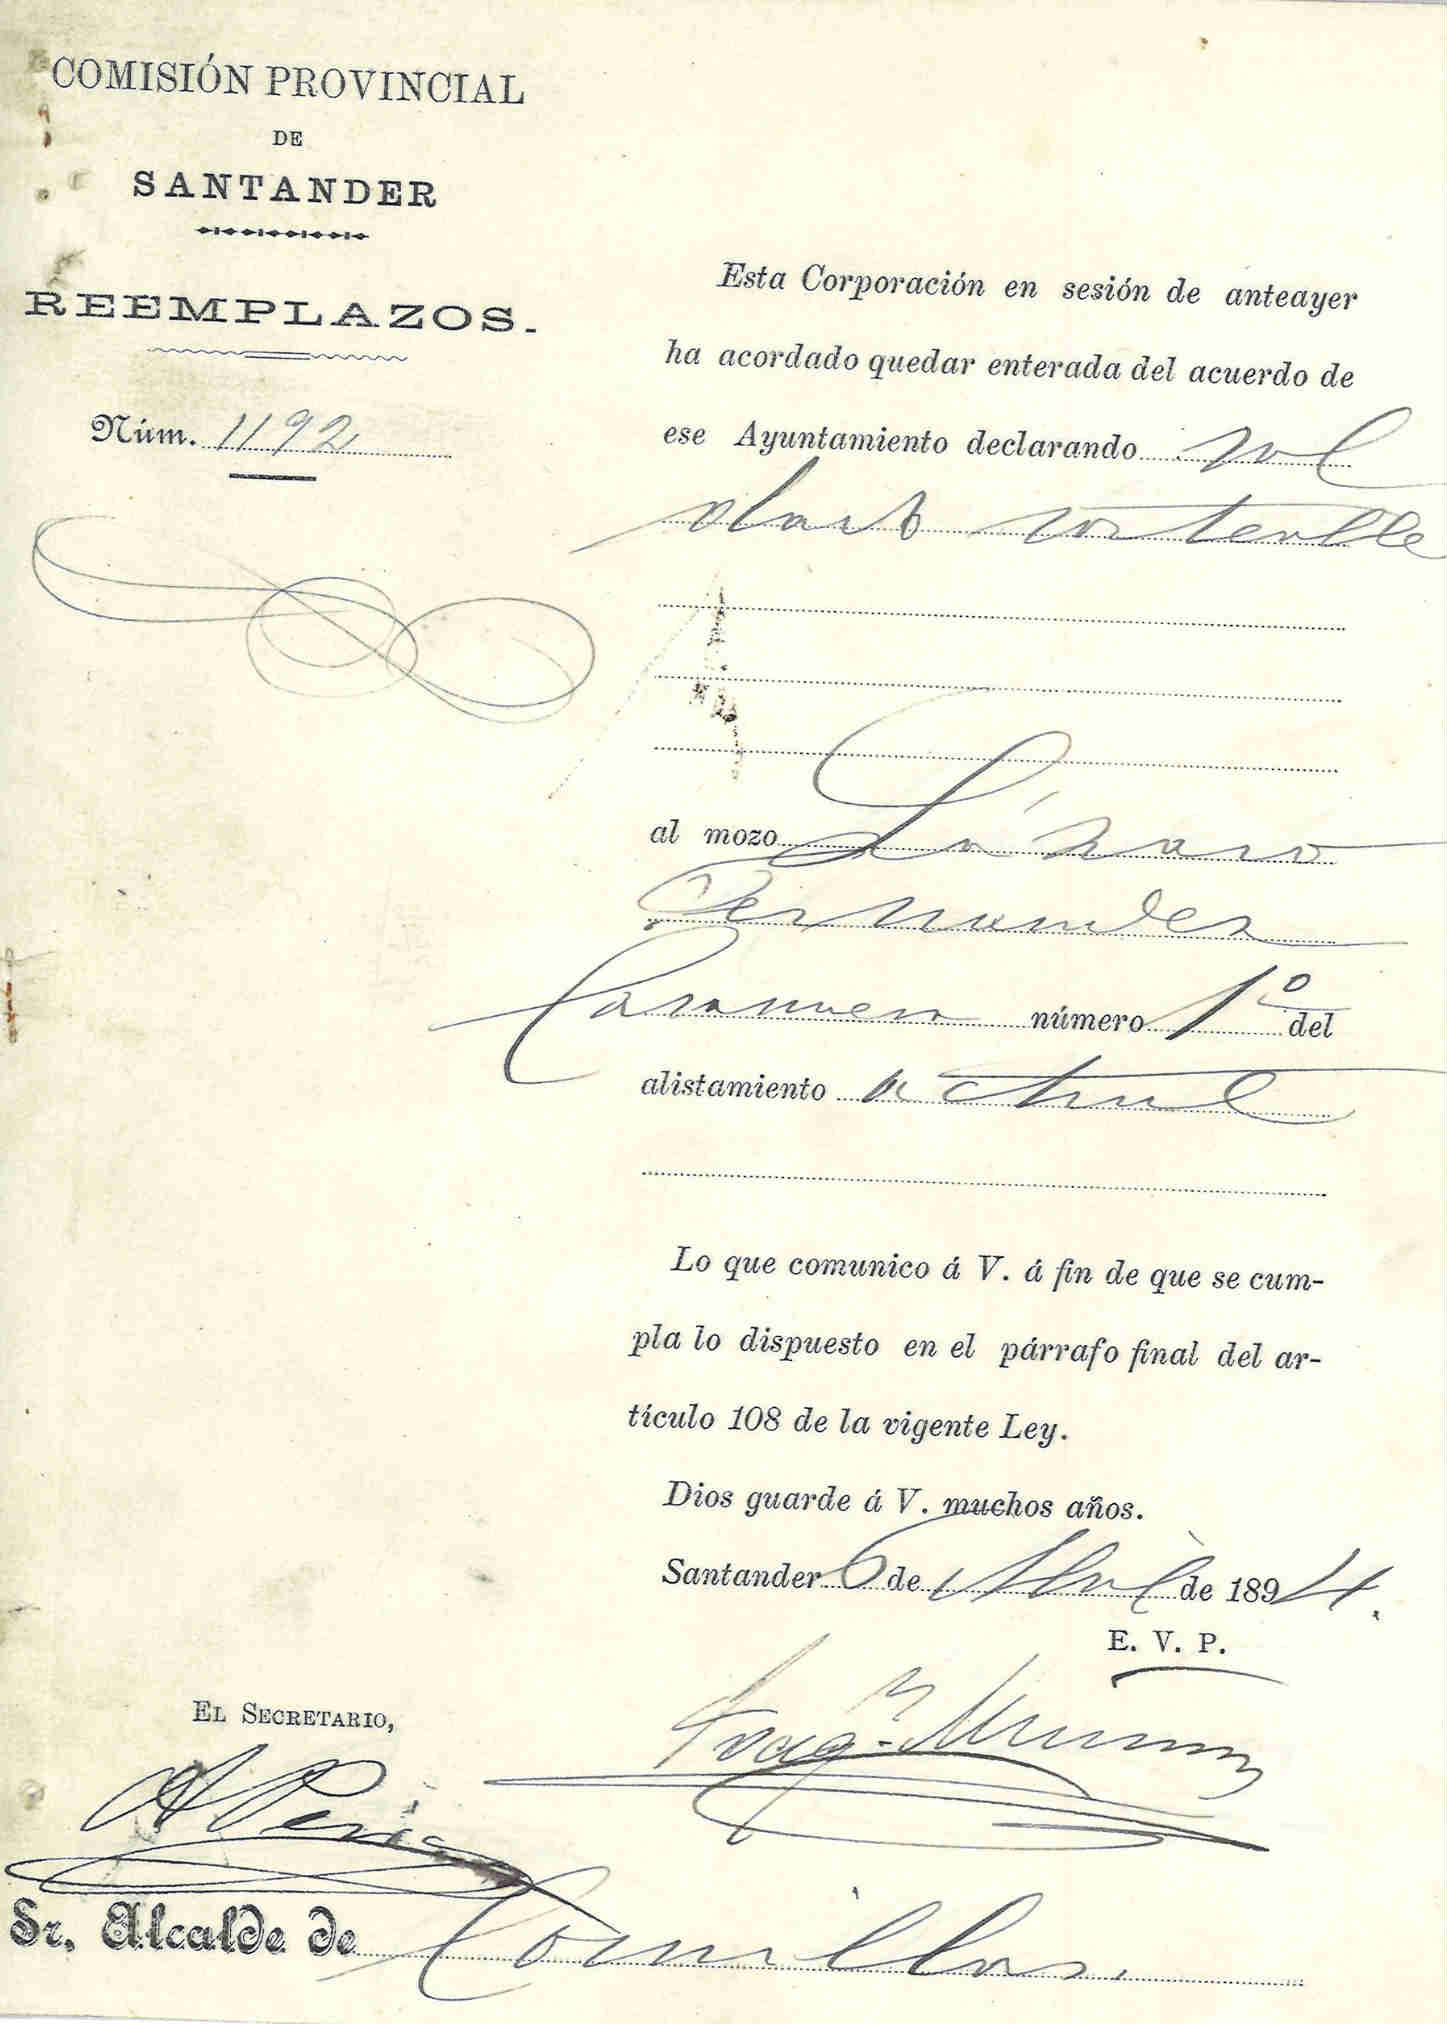 COMISIÓN PROVINCIAL
DE
SANTANDER
REEMPLAZOS.
Núm. 1192
Esta Corporación en sesión de anteayer
ha acordado quedar enterada del acuerdo de
ese Ayuntamiento declarando sol
dado sorteable
al mozo Lázaro
Fernandez
Casanueva número 1º del
alistamiento actual
Lo que comunico á V. á fin de que se cum-
pla lo dispuesto en el párrafo final del ar-
tículo 108 de la vigente Ley.
Dios guarde á V. muchos años.
Santander 6 de Abril de 1894.
E. V. P.
EL SECRETARIO,
Sr. Alcalde de Comillas.